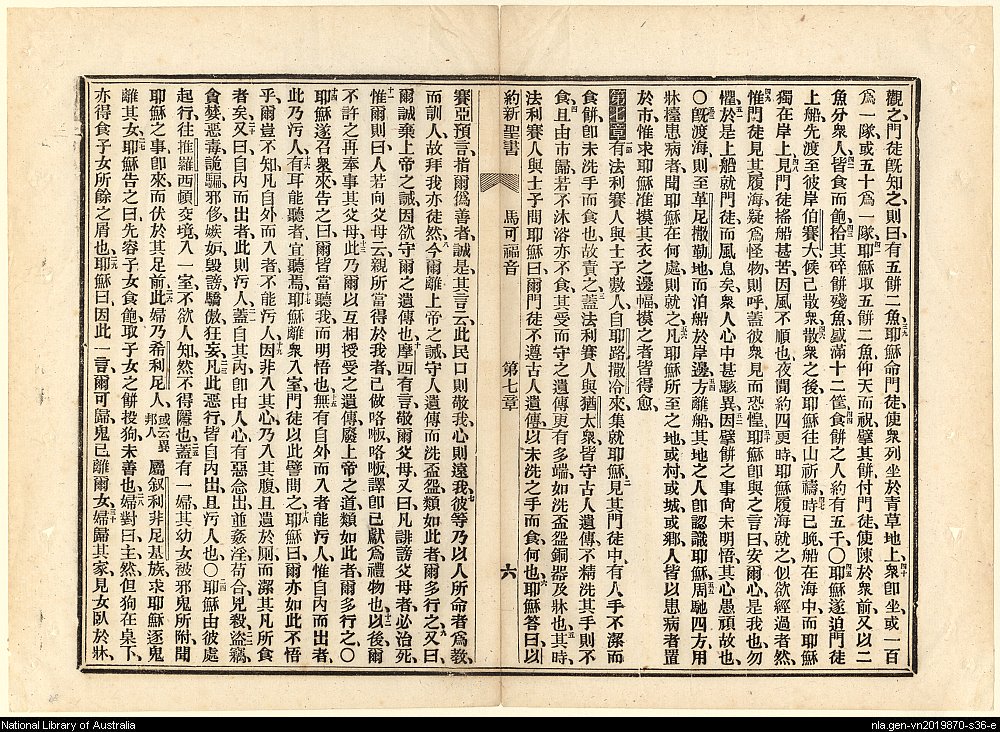 觀之門徒既知之則曰有五餅二魚耶穌命門徒使衆列坐於青草地上衆卽坐或一百
爲一隊或五十爲一隊耶穌取五餅二魚仰天而祝擘其餅付門徒使陳於衆前又以二
魚分衆人皆食而飽拾其碎餅殘魚盛滿十二筐食餅之人約有五千〇耶穌遂迫門徒
上船先渡至彼岸伯賽大候己散衆散衆之後耶穌往山祈禱時已晚船在海中而耶穌
獨在岸上見門徒搖船甚苦因風不順也夜間約四更時耶穌履海就之似欲經過者然
惟門徒見其履海疑爲怪物則呼蓋彼衆見而恐惶耶穌卽與之言曰安爾心是我也勿
懼於是上船就門徒而風息矣衆人心中甚駭異因擘餅之事尙未明悟其心愚頑故也
〇既渡海則至革尼撒勒地而泊船於岸邊方離船其地之人卽認識耶穌周馳四方用
牀擡患病者聞耶穌在何處則就之凡耶穌所至之地或村或城或鄉人皆以患病者置
於市惟求耶穌准摸其衣之邊幅摸之者皆得愈
第七章有法利賽人與士子數人自耶路撒冷來集就耶穌見其門徒中有人手不潔而
食餅卽未洗手而食也故責之蓋法利賽人與猶太衆皆守古人遺傳不精洗其手則不
食且由市歸若不沐浴亦不食其受而守之遺傳更有多端如洗盃盤銅器及牀也其時
法利賽人與士子問耶穌曰爾門徒不遵古人遺傳以未洗之手而食何也耶穌答曰以
約新聖書 馬可福音 第七章 六
賽亞預言指爾僞善者誠是其言云此民口則敬我心則遠我彼等乃以人所命者爲敎
而訓人故拜我亦徒然今爾離上帝之誡守人遺傳而洗盃盤類如此者爾多行之又曰
爾誠棄上帝之誡因欲守爾之遺傳也摩西有言敬爾父母又曰凡誹謗父母者必治死
惟爾則曰人若向父母云親所當得於我者已做咯𠵽咯𠵽譯卽已獻爲禮物也以後爾
不許之再奉事其父母此乃爾以互相授受之遺傳廢上帝之道類如此者爾多行之〇
耶穌遂召衆來告之曰爾皆當聽我而明悟也無有自外而入者能污人惟自內而出者
此乃污人有耳能聽者宜聽焉耶穌離衆入室門徒以此譬問之耶穌曰爾亦如此不悟
乎爾豈不知凡自外而入者不能污人因非入其心乃入其腹且遺於厠而潔其凡所食
者矣又曰自內而出者此則污人蓋自其內卽由人心有惡念出並姦淫苟合兇殺盜竊
貪婪惡毒詭騙邪侈嫉妒毀謗驕傲狂妄凡此惡行皆自內出且污人也〇耶穌由彼處
起行往推羅西頓交境入一室不欲人知然不得隱也蓋有一婦其幼女被邪鬼所附聞
耶穌之事卽來而伏於其足前此婦乃希利尼人或云異邦人屬叙利非尼基族求耶穌逐鬼
離其女耶穌告之曰先容子女食飽取子女之餅投狗未善也婦對曰主然但狗在桌下
亦得食子女所餘之屑也耶穌曰因此一言爾可歸鬼已離爾女婦歸其家見女臥於牀
National Library of Australia
nla.gen-vn2019870-s36-e